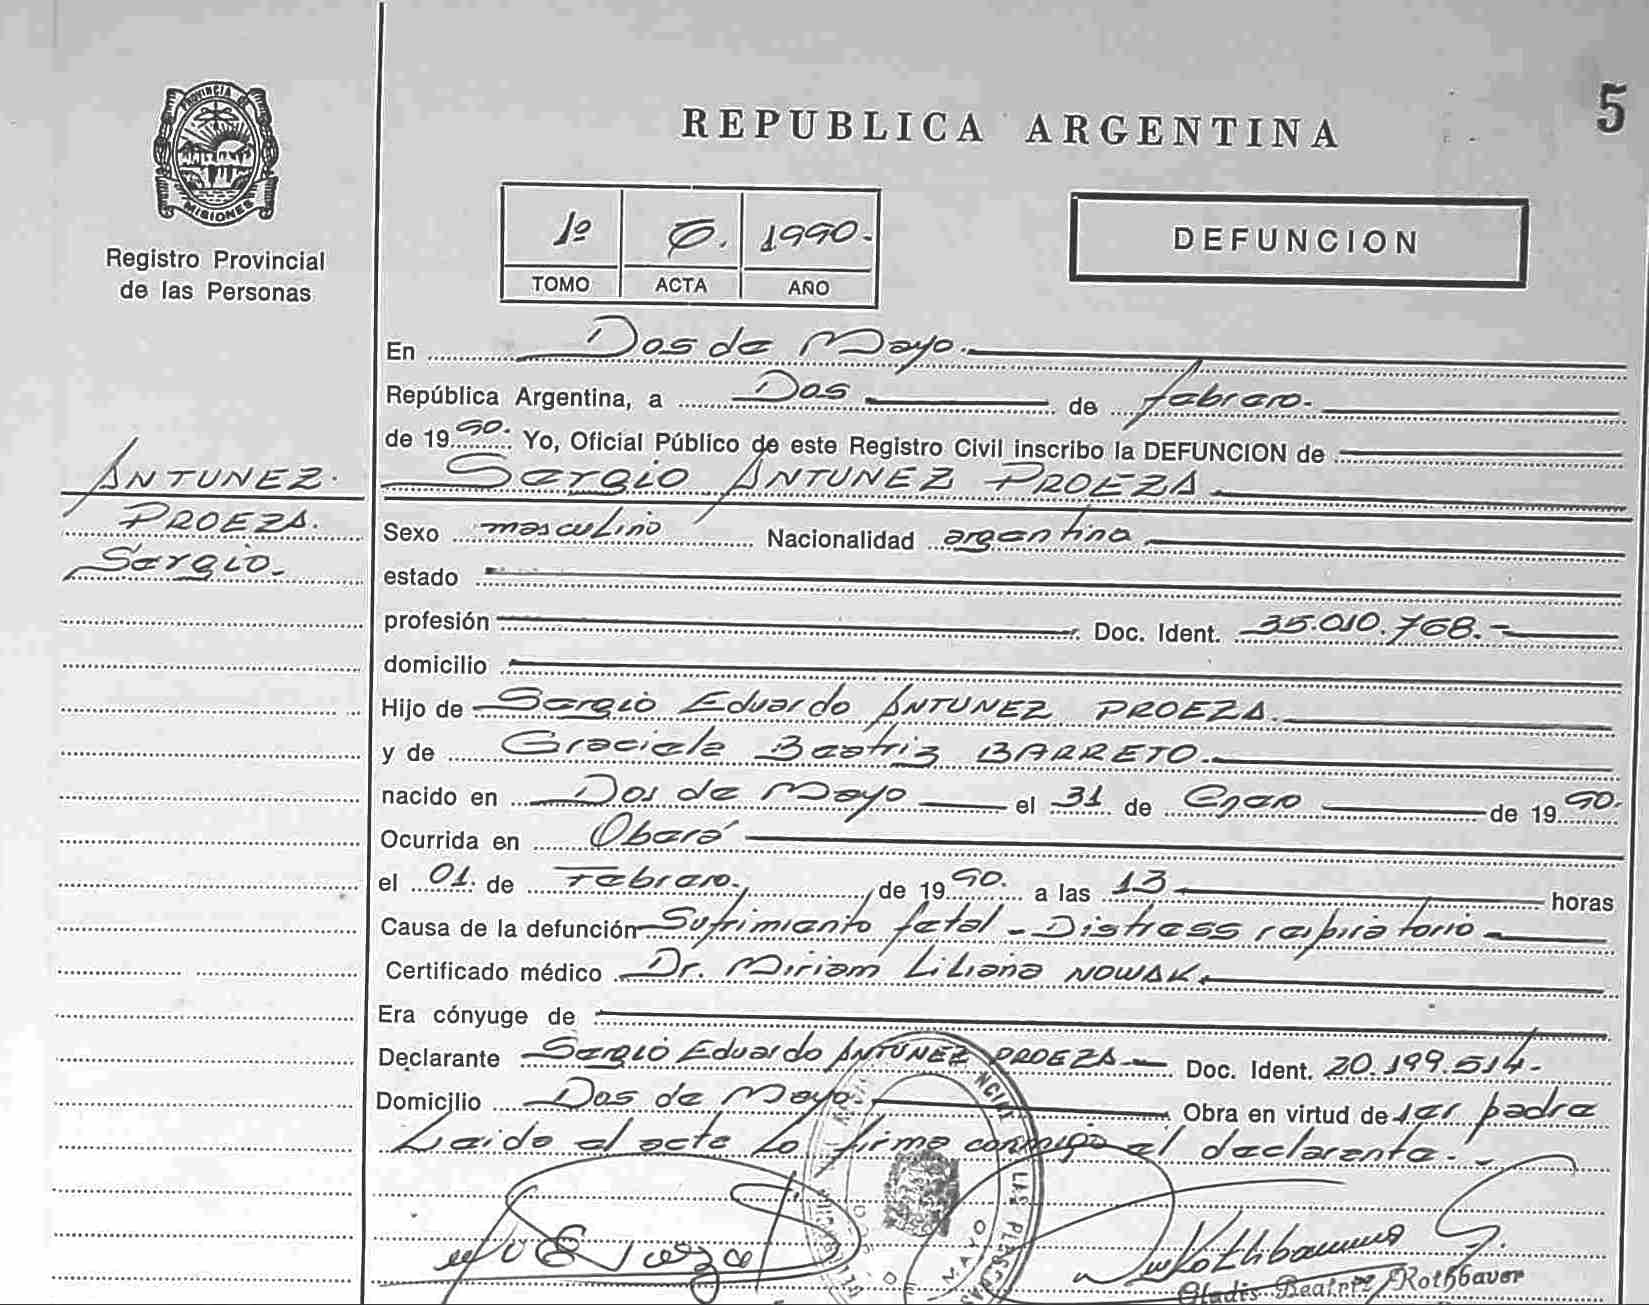 5
PROVINCIA DE
MISIONES
Registro Provincial
de las Personas
REPUBLICA ARGENTINA
1º 1990.-
TOMO ACTA AÑO
DEFUNCION
En Dos de Mayo.
República Argentina, a Dos de febrero.
de 1990. Yo, Oficial Público de este Registro Civil inscribo la DEFUNCION de
Sergio ANTUNEZ PROEZA
ANTUNEZ.
PROEZA.
Sergio.-
Sexo masculino Nacionalidad argentina
estado
profesión Doc. Ident. 35.010.768.-
domicilio
Hijo de Sergio Eduardo ANTUNEZ PROEZA.
y de Graciela Beatriz BARRETO.
nacido en Dos de Mayo el 31 de Enero de 1990.
Ocurrida en Oberá
el 01. de Febrero. de 1990. a las 13 horas
Causa de la defunción Sufrimiento fetal - Distress respiratorio
Certificado médico Dr. Miriam Liliana NOWAK
Era cónyuge de
Declarante Sergio Eduardo ANTUNEZ PROEZA Doc. Ident. 20.199.514.-
Domicilio Dos de Mayo. Obra en virtud de ser padre
Leido el acta lo firma conmigo el declarante.-
DE MAYO
Gladis Beatriz Rothbauer